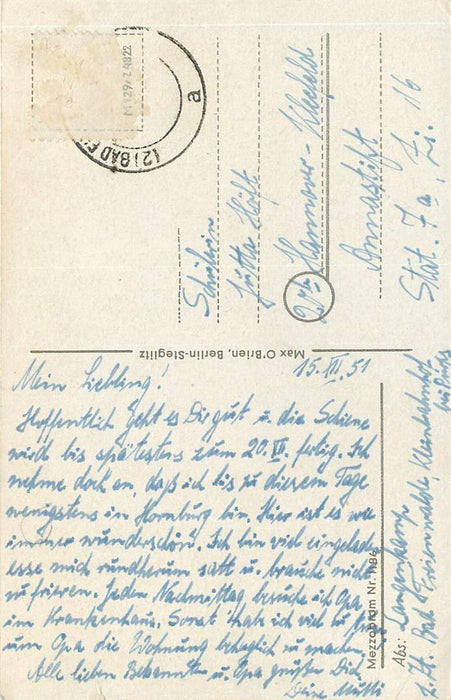 Mein Liebling!
15. III. 51
Hoffentlich geht es Dir gut u. die Schiene
wird bis spätestens zum 20. III. fertig. Ich
nehme doch an, daß ich bis zu diesem Tage
wenigstens in Hornburg bin. Hier ist es wie
immer wunderschön. Ich bin viel eingeladen
esse mich rundherum satt u. brauche nicht
zu frieren. Jeden Nachmittag besuche ich Opa
im Krankenhaus. Sonst hab ich viel zu
um Opa die Wohnung behaglich zu machen.
Alle lieben Bekannten u. Opa grüßen Dich
Deine Mutti
Max O'Brien, Berlin-Steglitz
Mezzogram Nr. 1186
Abs: Langenkamp
Bad Freienwalde, Kleinbahnhof
(2) BAD
a
Schülerin
Jutta Höft
Hannover-Kleefeld
Annastift
Stat. 7a, Zi. 16